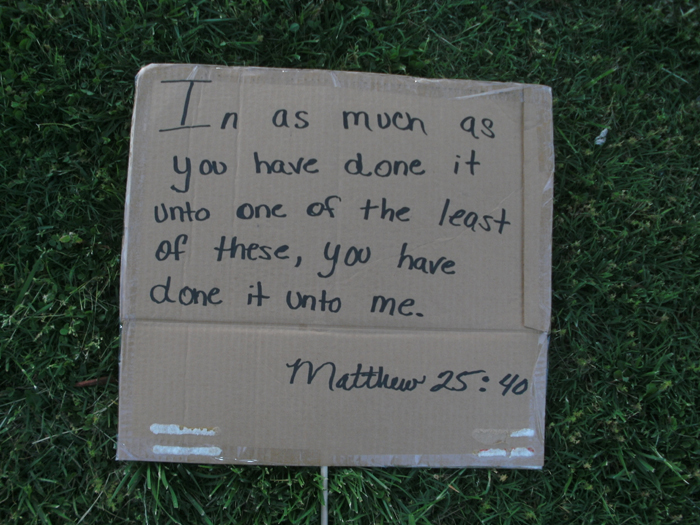 In as much as
you have done it
unto one of the least
of these, you have
done it unto me.
Matthew 25:40